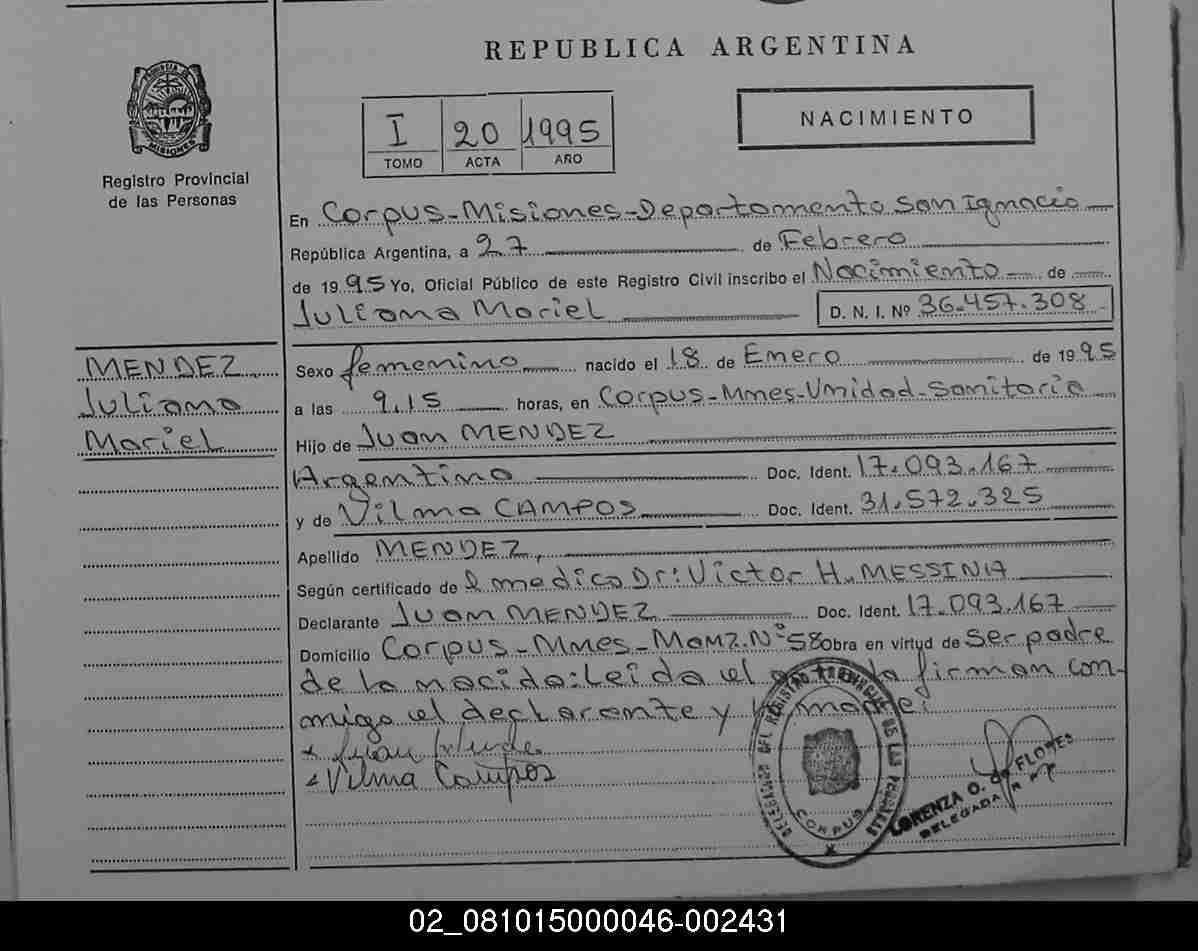 REPUBLICA ARGENTINA
PROVINCIA DE
MISIONES
Registro Provincial
de las Personas
I 20 1995
TOMO ACTA AÑO
NACIMIENTO
En Corpus-Misiones-Departamento San Ignacio
República Argentina, a 27 de Febrero
de 1995 Yo, Oficial Público de este Registro Civil inscribo el Nacimiento de
Juliana Mariel D. N. I. Nº 36.457.308
MENDEZ
Juliana
Mariel
Sexo femenino nacido el 18 de Enero de 1995
a las 9,15 horas, en Corpus-Mnes-Unidad-Sanitaria
Hijo de Juan MENDEZ
Argentino Doc. Ident. 17.093.167
y de Vilma CAMPOS Doc. Ident. 31.572.325
Apellido MENDEZ,
Según certificado de l medico Dr: Victor H. MESSINA
Declarante Juan MENDEZ Doc. Ident. 17.093.167
Domicilio Corpus-Mnes-Manz.Nº58 Obra en virtud de ser padre
de la nacida: Leida el acta la firman con-
migo el declarante y la madre:
x Juan Mende
x Vilma Campos
DELEGACION DEL REGISTRO PROVINCIAL DE LAS PERSONAS
CORPUS
LORENZA O. de FLORES
DELEGADA R P
02_081015000046-002431